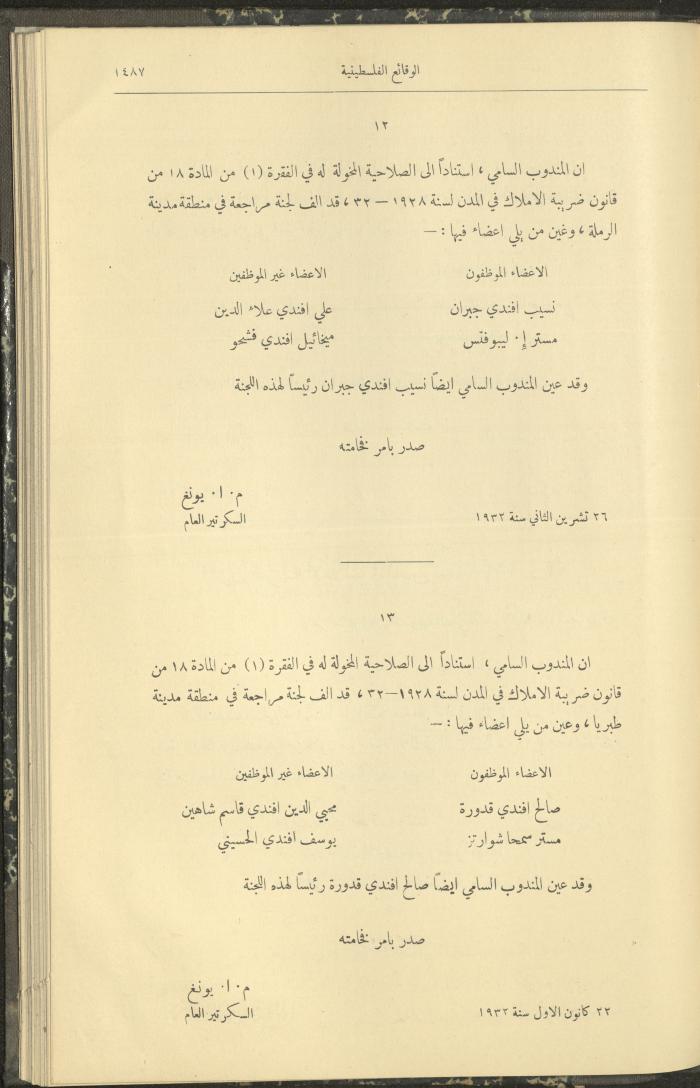 الوقائع الفلسطينية ١٤٨٧
١٢
ان المندوب السامي ، استناداً الى الصلاحية المخولة له في الفقرة (١) من المادة ١٨ من
قانون ضريبة الاملاك في المدن لسنة ١٩٢٨ — ٣٢ ، قد الف لجنة مراجعة في منطقة مدينة
الرملة ، وغين من يلي اعضاء فيها : —
الاعضاء الموظفون الاعضاء غير الموظفين
نسيب افندي جبران علي افندي علاء الدين
مستر إ. ليبوفتس ميخائيل افندي قشحو
وقد عين المندوب السامي ايضاً نسيب افندي جبران رئيساً لهذه اللجنة
صدر بامر فخامته
م. ا. يونغ
٢٦ تشرين الثاني سنة ١٩٣٢ السكرتير العام
١٣
ان المندوب السامي ، استناداً الى الصلاحية المخولة له في الفقرة (١) من المادة ١٨ من
قانون ضريبة الاملاك في المدن لسنة ١٩٢٨—٣٢ ، قد الف لجنة مراجعة في منطقة مدينة
طبريا ، وعين من يلي اعضاء فيها : —
الاعضاء الموظفون الاعضاء غير الموظفين
صالح افندي قدورة محيي الدين افندي قاسم شاهين
مستر سمحا شوارتز يوسف افندي الحسيني
وقد عين المندوب السامي ايضاً صالح افندي قدورة رئيساً لهذه اللجنة
صدر بامر فخامته
م. ا. يونغ
٢٢ كانون الاول سنة ١٩٣٢ السكرتير العام